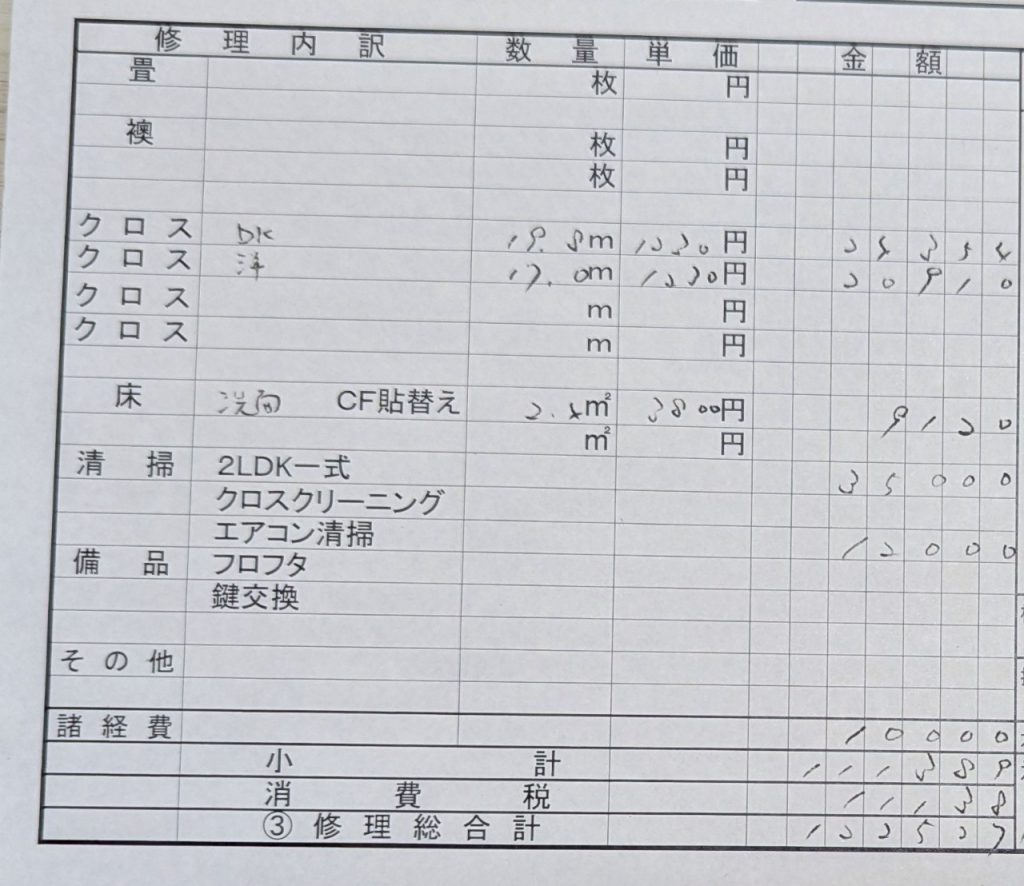 修理内訳 数量 単価 金額
畳 枚 円
襖 枚 円
枚 円
クロス DK 19.8m 1230円 24354
クロス 洋 17.0m 1230円 20910
クロス m 円
クロス m 円
床 洗面 CF貼替え 2.4㎡ 3800円 9120
㎡ 円
清掃 2LDK一式 35000
クロスクリーニング
エアコン清掃 12000
備品 フロフタ
鍵交換
その他
諸経費 10000
小計 111389
消費税 11138
③修理総合計 122527